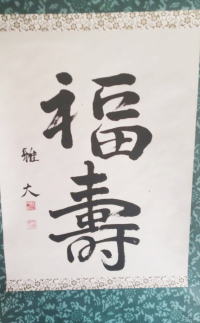 福壽
雅大